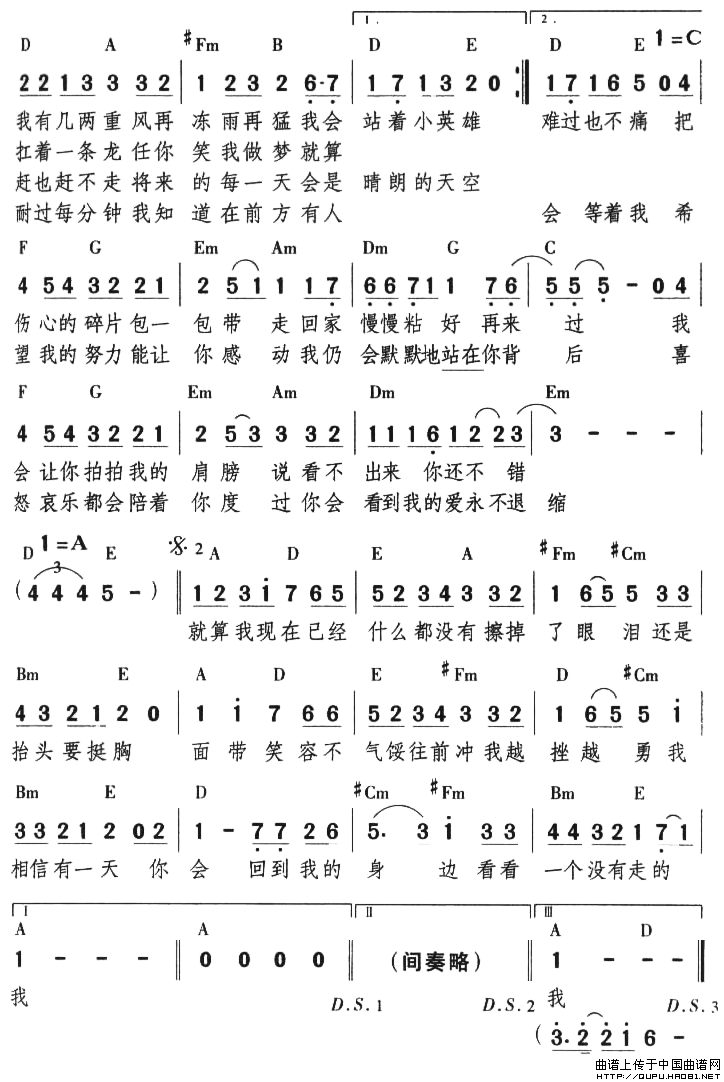 1. 2.
D A #Fm B D E D E 1=C
2 2 1 3 3 3 2 1 2 3 2 6·7 1 7 1 3 2 0 1 7 1 6 5 0 4
我有几两重风再 冻雨再猛我会 站着小英雄 难过也不痛把
扛着一条龙任你 笑我做梦就算
赶也赶不走将来 的每一天会是 晴朗的天空
耐过每分钟我知 道在前方有人 会等着我希
F G Em Am Dm G C
4 5 4 3 2 2 1 2 5 1 1 1 7 6 6 7 1 1 7 6 5 5 5 - 0 4
伤心的碎片包一 包带走回家 慢慢粘好再来 过 我
望我的努力能让 你感动我仍 会默默地站在你背 后 喜
F G Em Am Dm Em
4 5 4 3 2 2 1 2 5 3 3 3 2 1 1 1 6 1 2 2 3 3 - - -
会让你拍拍我的 肩膀说看不 出来你还不错
怒哀乐都会陪着 你度过你会 看到我的爱永不退 缩
D 1=A E 𝄋2 A D E A #Fm #Cm
3
( 4 4 4 5 - ) 1 2 3 1 7 6 5 5 2 3 4 3 3 2 1 6 5 5 3 3
就算我现在已经 什么都没有擦掉 了眼泪还是
Bm E A D E #Fm D #Cm
4 3 2 1 2 0 1 1 7 6 6 5 2 3 4 3 3 2 1 6 5 5 1
抬头要挺胸 面带笑容不 气馁往前冲我越 挫越勇我
Bm E D #Cm #Fm Bm E
3 3 2 1 2 0 2 1 - 7 7 2 6 5. 3 1 3 3 4 4 3 2 1 7 1
相信有一天你 会回到我的 身边看看 一个没有走的
I II III
A A A D
1 - - - 0 0 0 0 (间奏略) 1 - - -
我 D.S.1 D.S.2 我 D.S.3
( 3. 2 2 1 6 -
曲谱上传于中国曲谱网
HTTP://QUPU.HAO81.NET